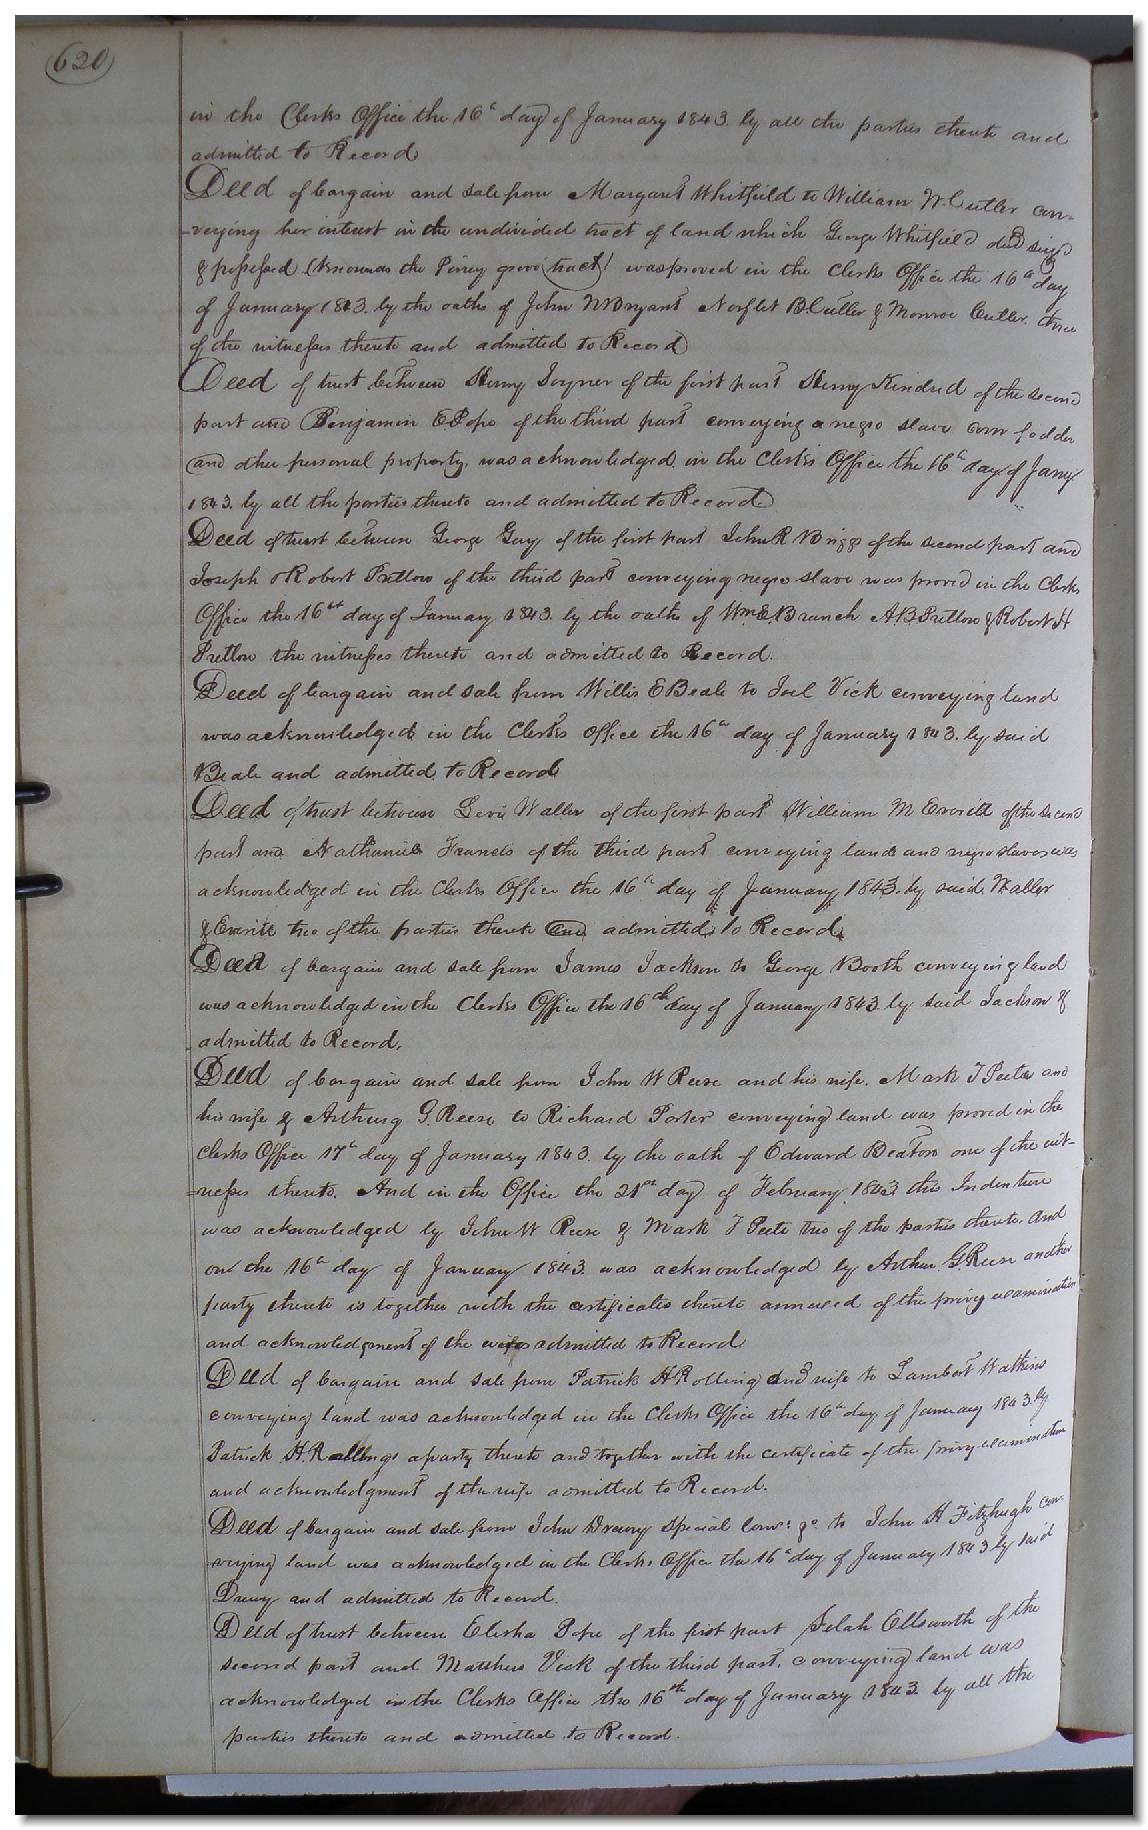 620
in the Clerks Office the 16th day of January 1843. by all the parties thereto and
admitted to Record
Deed of bargain and sale from Margaret Whitfield to William N. Cutler con-
-veying her interest in the undivided tract of land which George Whitfield died
& possessed (known as the Piney grove tract) was proved in the Clerks Office the 16th day
of January 1843. by the oaths of John W Bryant Norflet B. Cutler & Monroe Cutler three
of the witnesses thereto and admitted to Record
Deed of trust between Henry Joyner of the first part Henry Kindred of the second
part and Benjamin E. Pope of the third part conveying a negro slave corn fodder
and other personal property, was acknowledged in the Clerks Office the 16th day of Jany
1843. by all the parties thereto and admitted to Record
Deed of trust between George Gay of the first part John R Briggs of the second part and
Joseph & Robert Pretlow of the third part conveying negro slave was proved in the Clerks
Office the 16th day of January 1843. by the oaths of Wm E. Branch A. B Pretlow & Robert H
Pretlow the witnesses thereto and admitted to Record.
Deed of bargain and sale from Willis E Beale to Joel Vick conveying land
was acknowledged in the Clerks Office the 16th day of January 1843. by said
Beale and admitted to Record
Deed of trust between Levi Waller of the first part William M Everitt of the second
part and Nathaniel Francis of the third part conveying land and negro slaves was
acknowledged in the Clerks Office the 16th day of January 1843. by said Waller
& Everitt two of the parties thereto and admitted to Record
Deed of bargain and sale from James Jackson to George Booth conveying land
was acknowledged in the Clerks Office the 16th day of January 1843 by said Jackson &
admitted to Record.
Deed of bargain and sale from John W Reese and his wife. Mark T Peete and
his wife & G. Reese to Richard Porter conveying land was proved in the
Clerks Office 17th day of January 1843. by the oath of Edward Beaton one of the wit-
-nesses thereto. And in the Office the 21st day of February 1843 this Indenture
was acknowledged by John W Reese & Mark T Peete two of the parties thereto. And
on the 16th day of January 1843. was acknowledged by Arthur G. Reese another
party thereto is together with the certificates thereto annexed of the privy examination
and acknowledgment of the wifes admitted to Record
Deed of bargain and sale from Patrick H Rolling and wife to Lambert Watkins
conveying land was acknowledged in the Clerks Office the 16th day of January 1843. by
Patrick H. Rollings a party thereto and together with the certificate of the privy examination
and acknowledgment of the wife admitted to Record.
Deed of bargain and sale from John Drewry Special Comr. &c to John H Fitzhugh con-
veying land was acknowledged in the Clerks Office the 16th day of January 1843 by said
Drewry and admitted to Record.
Deed of trust between Elisha Pope of the first part Selah Ellsworth of the
second part and Matthew Vick of the third part, conveying land was
acknowledged in the Clerks Office the 16th day of January 1843 by all the
parties thereto and admitted to Record.